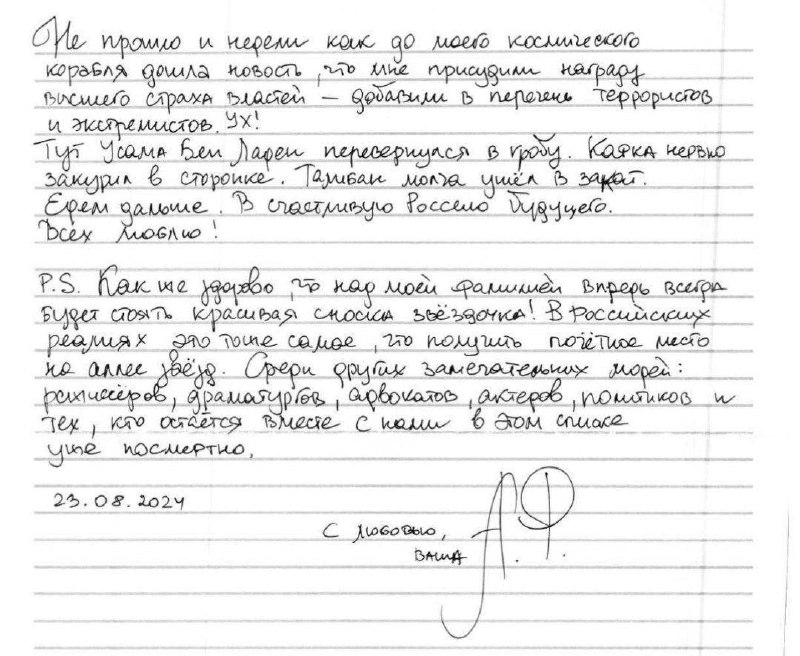 Не прошло и недели как до моего космического
корабля дошла новость, что мне присудили награду
высшего страха властей – добавили в перечень террористов
и экстремистов. Ух!
Тут Усама Бен Ладен перевернулся в гробу. Кафка нервно
закурил в сторонке. Талибан молча ушёл в закат.
Едем дальше. В счастливую Россию будущего.
Всех люблю!
P.S. Как же здорово, что над моей фамилией впредь всегда
будет стоять красивая сноска звёздочка! В Российских
реалиях это тоже самое, что получить почётное место
на аллее звёзд. Среди других замечательных людей:
режиссёров, драматургов, адвокатов, актеров, политиков и
тех, кто остаётся вместе с нами в этом списке
уже посмертно.
23.08.2024
С любовью,
ваша А.Ф.